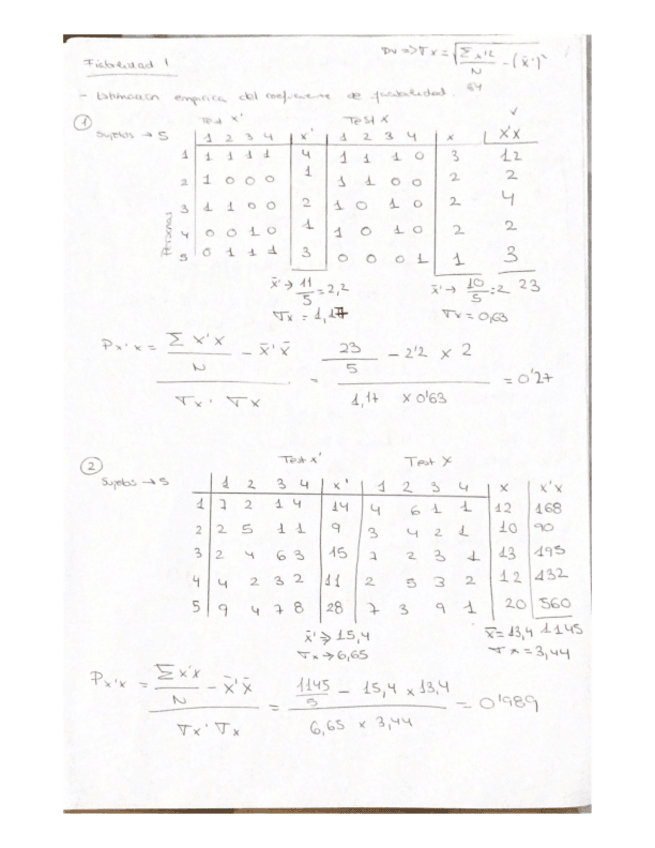 Fiabilidad 1
DV => σx = √(Σx'² / N - (x̄')²
- Estimación empírica del coeficiente de fiabilidad.
① Test x' Test x
Sujetos → 5 1 2 3 4 x' 1 2 3 4 x x'x
Personas
1 1 1 1 1 4 1 1 1 0 3 12
2 1 0 0 0 1 1 1 0 0 2 2
3 1 1 0 0 2 1 0 1 0 2 4
4 0 0 1 0 1 1 0 1 0 2 2
5 0 1 1 1 3 0 0 0 1 1 3
x̄' → 11/5 = 2,2 x̄ → 10/5 = 2 23
σx = 1,17 σx = 0,63
Px'x = (Σx'x / N - x̄'x̄) / (σx · σx) = (23/5 - 2'2 x 2) / (1,17 x 0'63) = 0'27
② Test x' Test x
Sujetos → 5 1 2 3 4 x' 1 2 3 4 x x'x
1 7 2 1 4 14 4 6 1 1 12 168
2 2 5 1 1 9 3 4 2 1 10 90
3 2 4 6 3 15 7 2 3 1 13 195
4 4 2 3 2 11 2 5 3 2 12 132
5 9 4 7 8 28 7 3 9 1 20 560
x̄' → 15,4 x̄ = 13,4 1145
σx → 6,65 σx = 3,44
Px'x = (Σx'x / N - x̄'x̄) / (σx · σx) = (1145/5 - 15,4 x 13,4) / (6,65 x 3,44) = 0'989